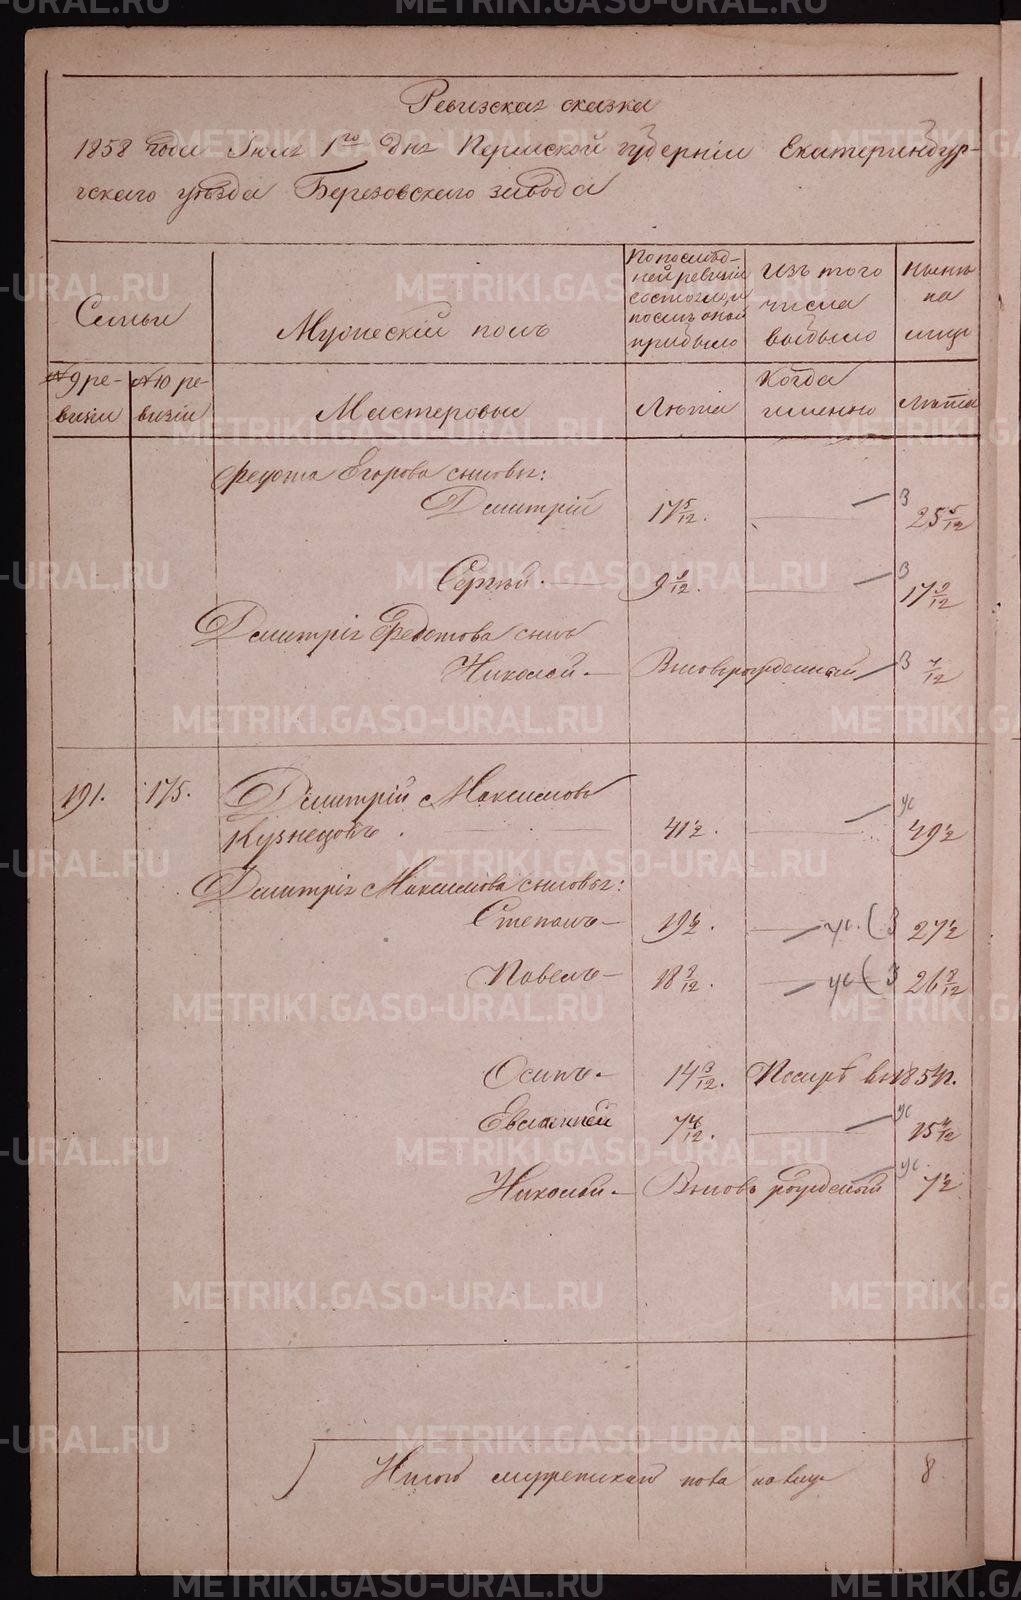 Ревизская сказка
1858 года Июля 1го дня Пермской губернiи Екатеринбур-
гскаго уѣзда Березовскаго завода
Семьи
Мужескiй полъ
По послѣд-
ней ревизiи
состояло и
послѣ оной
прибыло
Изъ того
числа
выбыло
Нынѣ
на
лицо
№ 9 ре-
визiи
№ 10 ре-
визiи
Мастеровые
Лѣта
Когда
именно
Лѣта
Федота Егорова сыновья:
Дмитрiй 17 5/12. — З 25 5/12
Сергѣй. — 9 9/12. — З 17 9/12
Дмитрiя Федотова сынъ
Николай — Вновьрожденный З 7/12
191. 175. Дмитрiй Максимовъ
Кузнецовъ. 41 1/2. — ус 49 1/2
Дмитрiя Максимова сыновья:
Степанъ — 19 1/2. — ус. (З 27 1/2
Павелъ — 18 8/12. — ус (З 26 8/12
Осипъ — 14 3/12. Померъ въ 1854 г.
Евгенiй 7 4/12. — ус 15 4/12
Николай — Вновь рожденый ус. 7 1/2
Итого мужескаго пола на лицо 8
METRIKI.GASO-URAL.RU